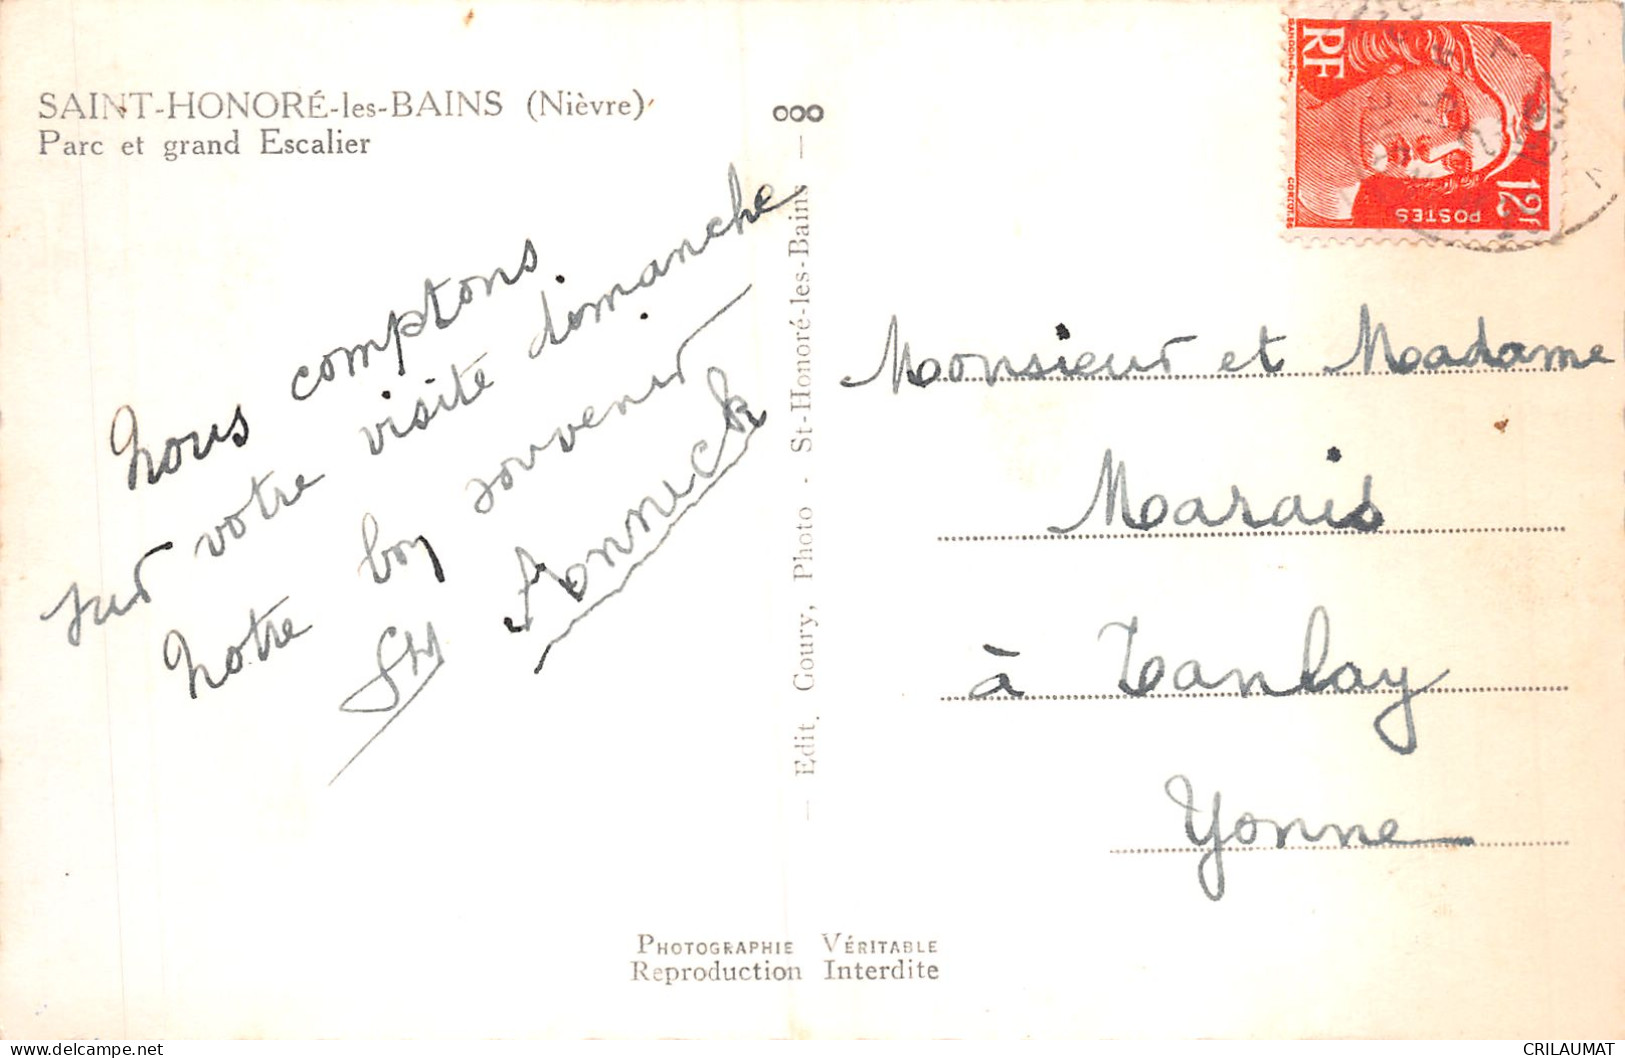 SAINT-HONORÉ-les-BAINS (Nièvre)
Parc et grand Escalier
Nous comptons
sur votre visite dimanche
Notre bon souvenir
Annick
— Edit. Goury, Photo - St-Honoré-les-Bains —
RF
POSTES
12F
Monsieur et Madame
Marais
à Tanlay
Yonne
PHOTOGRAPHIE VÉRITABLE
Reproduction Interdite
CRILAUMAT